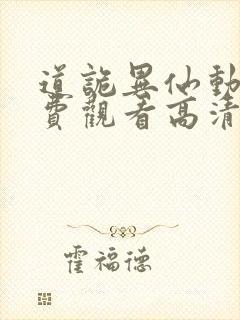 道詭異仙動
費觀看高清
霍福德